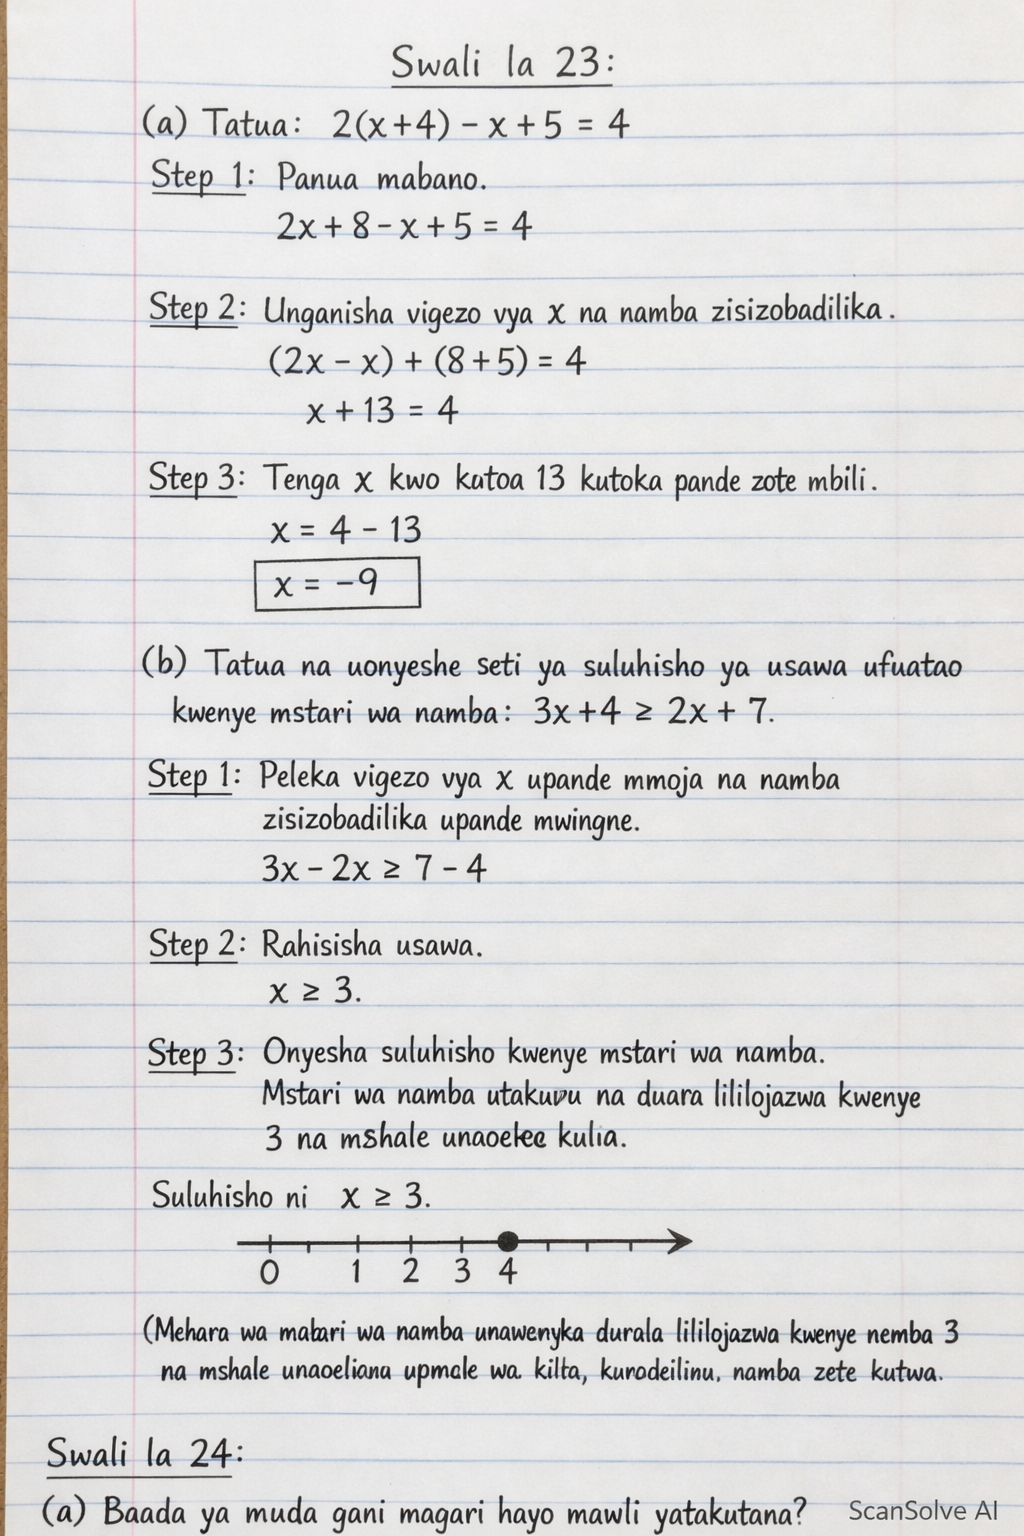 Swali la 23:
(a) Tatua: 2(x+4) – x + 5 = 4
Step 1: Panua mabano.
2x + 8 – x + 5 = 4
Step 2: Unganisha vigezo vya x na namba zisizobadilika.
(2x – x) + (8 + 5) = 4
x + 13 = 4
Step 3: Tenga x kwo kutoa 13 kutoka pande zote mbili.
x = 4 – 13
x = –9
(b) Tatua na uonyeshe seti ya suluhisho ya usawa ufuatao
kwenye mstari wa namba: 3x + 4 ≥ 2x + 7.
Step 1: Peleka vigezo vya x upande mmoja na namba
zisizobadilika upande mwingne.
3x – 2x ≥ 7 – 4
Step 2: Rahisisha usawa.
x ≥ 3.
Step 3: Onyesha suluhisho kwenye mstari wa namba.
Mstari wa namba na duara lililojazwa kwenye
3 na mshale kulia.
Suluhisho ni x ≥ 3.
0 1 2 3 4
(Mehara wa wa namba unawenyka durala lililojazwa kwenye nemba 3
na mshale unaoeliana wa kilta, namba zete kutwa.
Swali la 24:
(a) Baada ya muda gani magari hayo mawli yatakutana?
ScanSolve AI